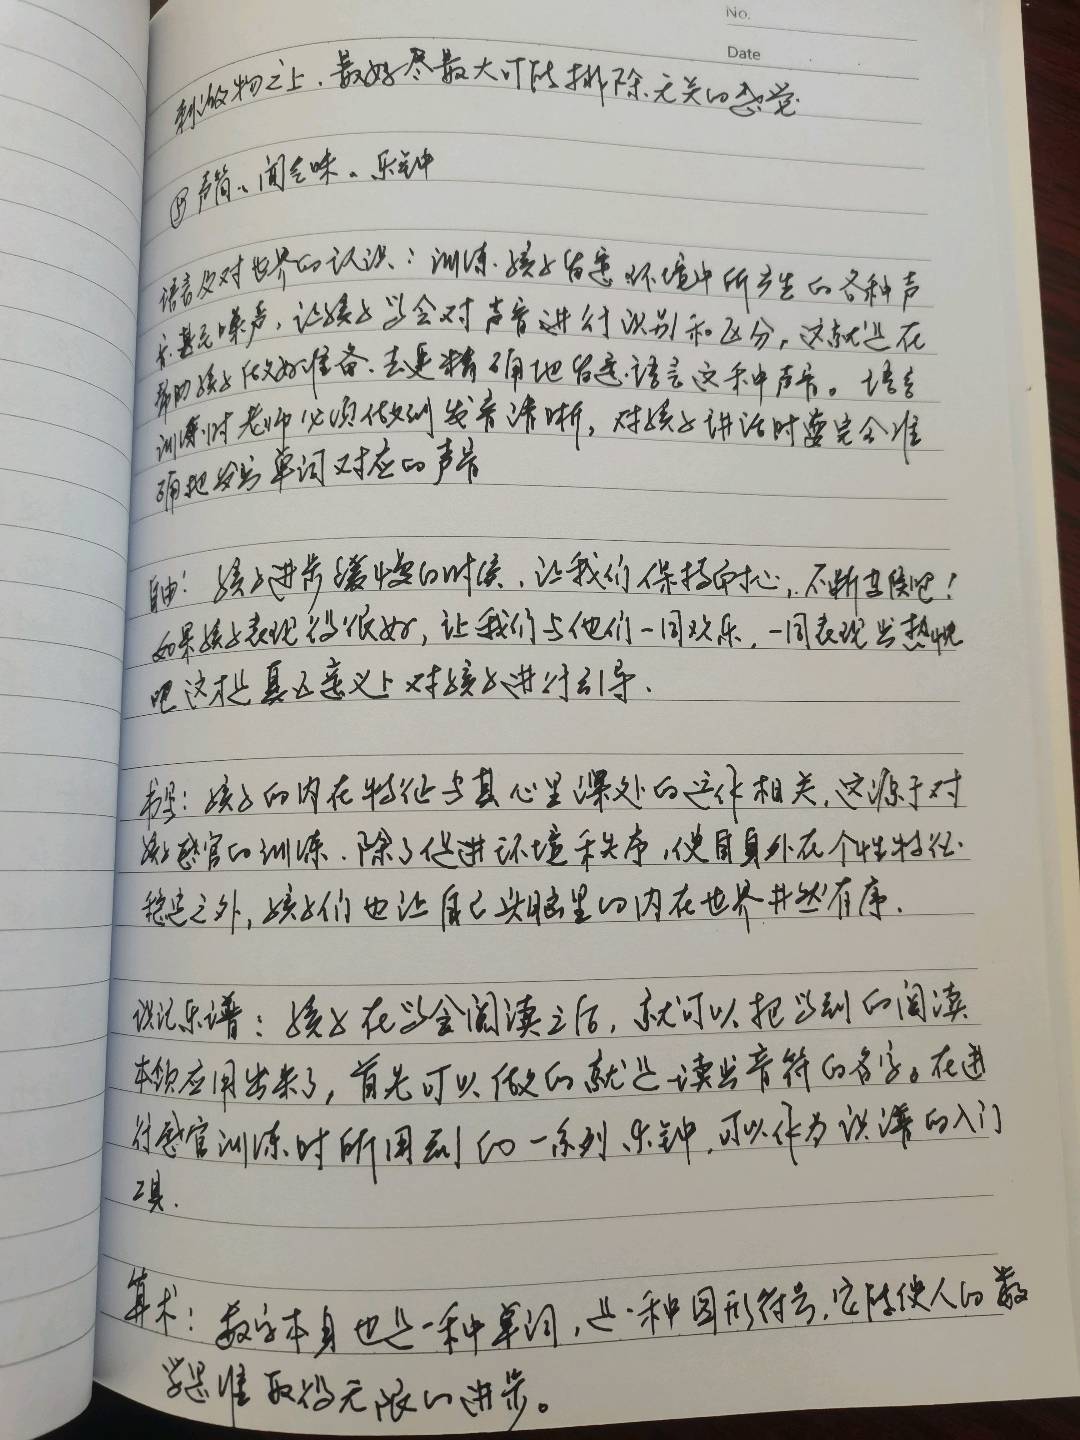 No.
Date
刺激物之上，最好尽最大可能排除无关的感觉
⑤ 声筒、闻气味、乐钟
语言及对世界的认识：训练孩子留意环境中所产生的各种声
音甚至噪声，让孩子学会对声音进行识别和区分，这就是在
帮助孩子做好准备，去更精确地留意语言这种声音。语言
训练时老师必须做到发音清晰，对孩子讲话时要完全准
确地发出单词对应的声音
自由：孩子进步缓慢的时候，让我们保持耐心，不断等候吧！
如果孩子表现得很好，让我们与他们一同欢乐，一同表现出热忱
吧 这才是真正意义上对孩子进行引导.
书写：孩子的内在特征与其心里深处的运作相关，这源于对
孩子感官的训练. 除了促进环境和秩序，使自身外在个性特征
稳定之外，孩子们也让自己头脑里的内在世界井然有序.
识记乐谱：孩子在学会阅读之后，就可以把学到的阅读
本领应用出来了，首先可以做的就是读出音符的名字。在进
行感官训练时所用到的一系列乐钟，可以作为识谱的入门
工具.
算术：数字本身也是一种单词，是一种图形符号，它能使人的数
学思维取得无限的进步。